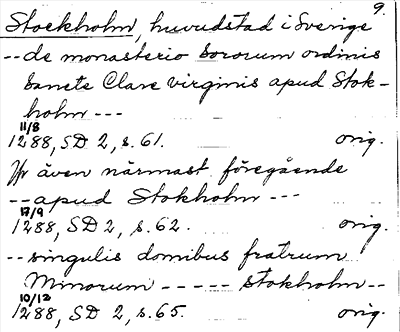 9.
Stockholm, huvudstad i Sverige
-- de monasterio sororum ordinis
sancte Clare virginis apud Stok-
holm ---
11/8
1288, SD 2, s. 61. orig.
Jfr även närmast föregående
-- apud Stokholm ---
17/9
1288, SD 2, s. 62. orig.
-- singulis domibus fratrum
Minorum ----- stokholm --
10/12
1288, SD 2, s. 65. orig.